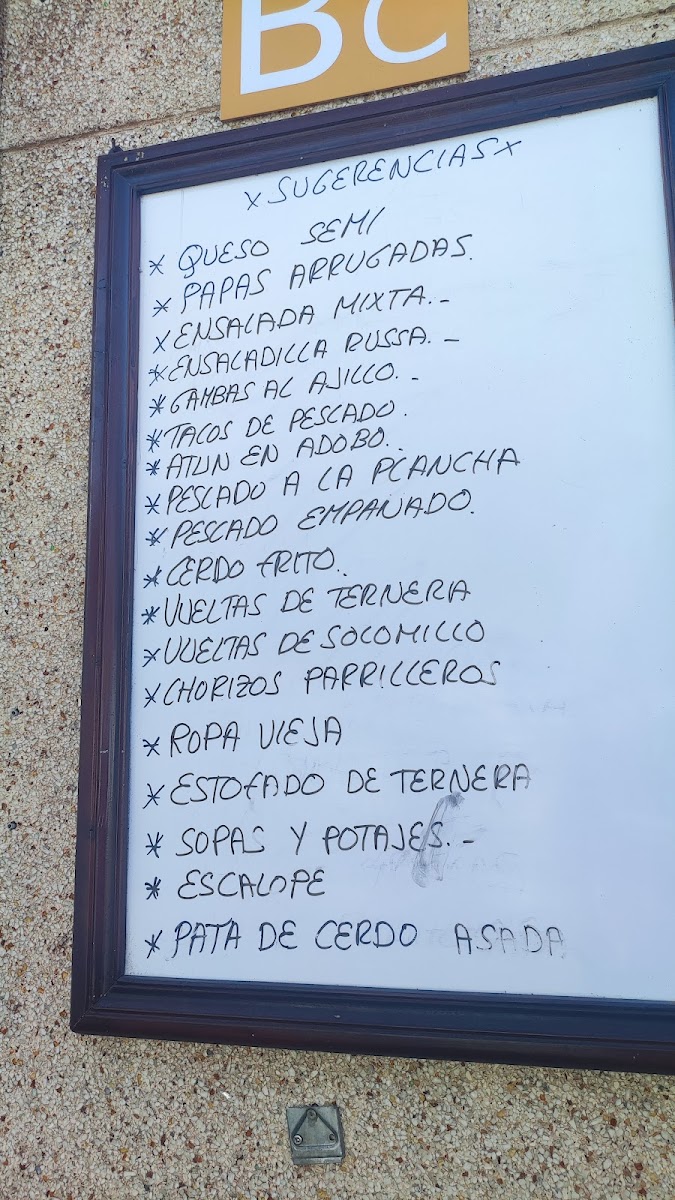 BC
x SUGERENCIAS x
* QUESO SEMI
* PAPAS ARRUGADAS.
x ENSALADA MIXTA.-
* ENSALADILLA RUSSA.-
* GAMBAS AL AJILLO.-
* TACOS DE PESCADO.
* ATUN EN ADOBO.
* PESCADO A LA PLANCHA
* PESCADO EMPANADO.
* CERDO FRITO.
* VUELTAS DE TERNERA
* VUELTAS DE SOLOMILLO
* CHORIZOS PARRILLEROS
* ROPA VIEJA
* ESTOFADO DE TERNERA
* SOPAS Y POTAJES.-
* ESCALOPE
* PATA DE CERDO ASADA